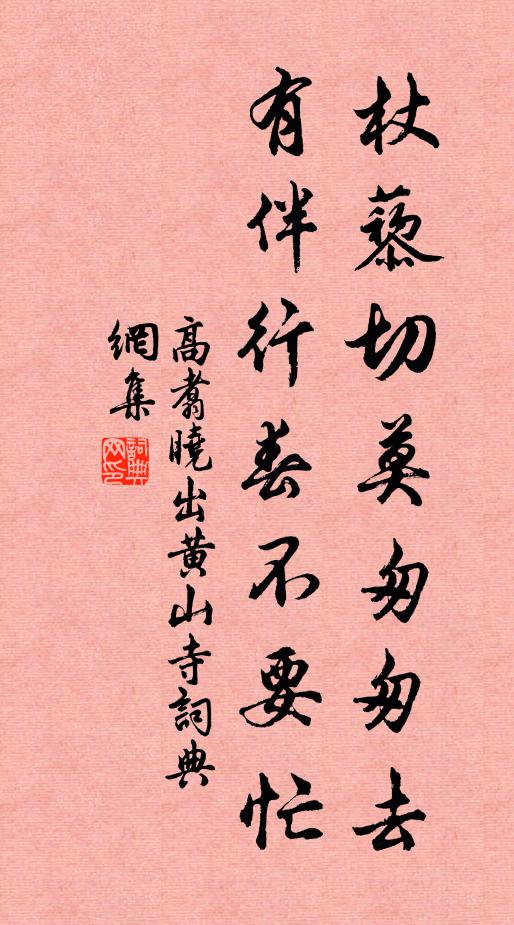 杖藜切莫匆匆去
有伴行春不要忙
高翥曉出黃山寺詞典
網集
詞典網印